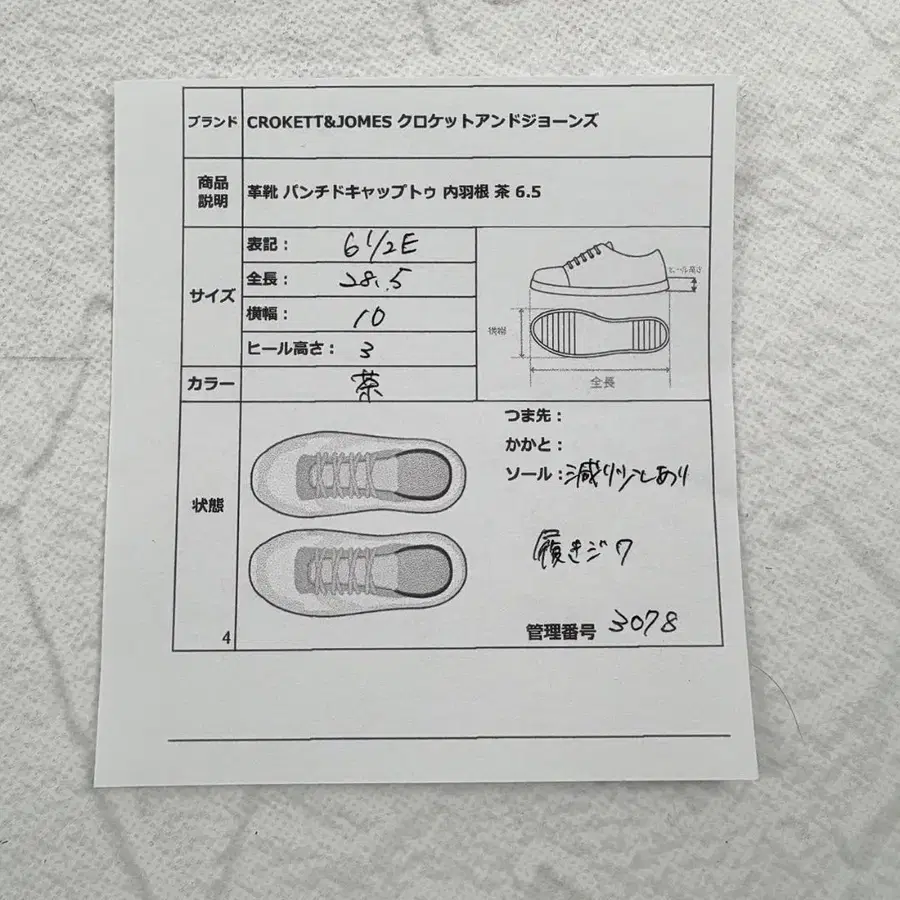 ブランド CROKETT&JOMES クロケットアンドジョーンズ
商品
説明
革靴 パンチドキャップトゥ 内羽根 茶 6.5
サイズ
表記: 6 1/2E
全長: 28.5
横幅: 10
ヒール高さ: 3
ヒール高さ
横幅
全長
カラー 茶
状態
つま先:
かかと:
ソール:減り少しあり
履きジワ
管理番号 3078
4